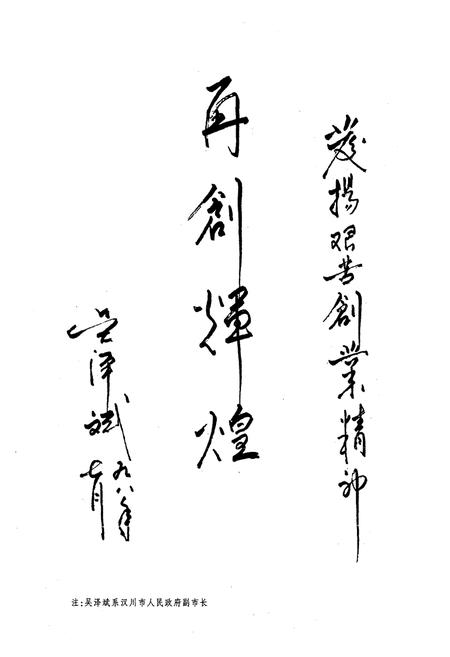 發揚艰苦創業精神
再創輝煌
吴泽斌
九八年
七月
注:吴泽斌系汉川市人民政府副市长